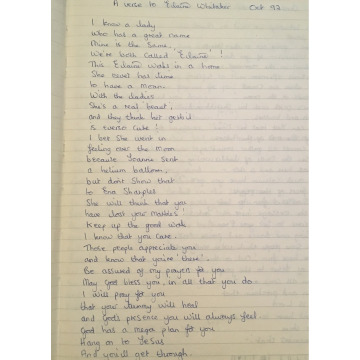 A verse to Eilaine Whitaker Oct 92
I know a lady
Who has a great name
Mine is the same,
We're both called 'Eilaine'!
This Eilaine works in a home
She never has time
to have a moan.
With the ladies
She's a real 'beaut',
and they think her
is ever so cute!
I bet she went in
feeling over the moon
because Joanne sent
a helium balloon,
but don't show that
to Ena Sharples
She will think that you
have lost your marbles!
Keep up the good work
I know that you care.
These people appreciate you
and know that you're 'there'.
Be assured of my prayers for you
May God bless you, in all that you do.
I will pray for you
that your tummy will heal
and God's presence you will always feel
God has a mega plan for you
Hang on to Jesus
And you'll get through.